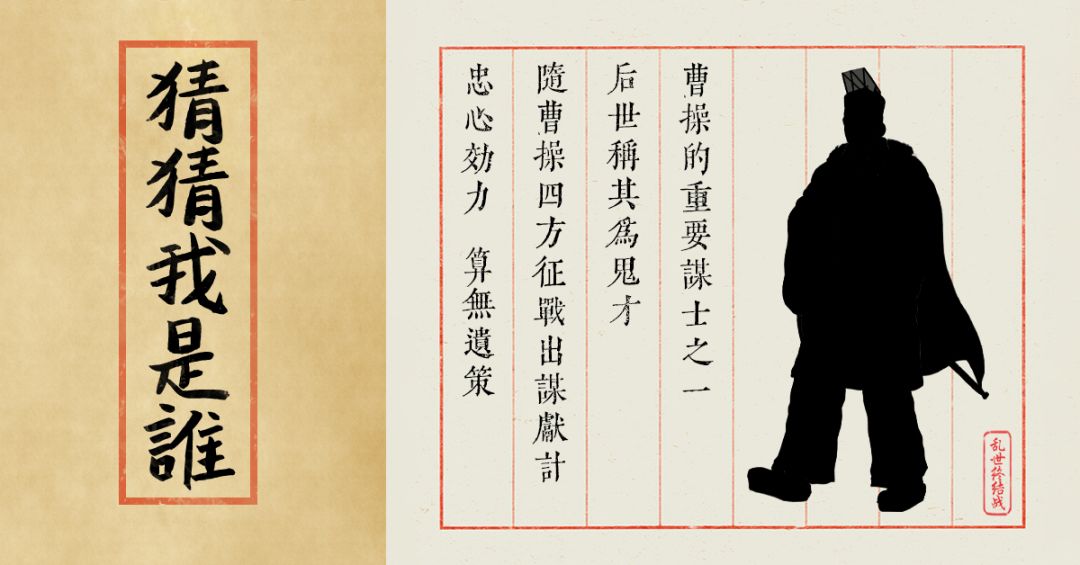 猜猜我是誰
曹操的重要謀士之一
后世稱其爲鬼才
隨曹操四方征戰出謀獻計
忠心効力 算無遺策
乱世终结战